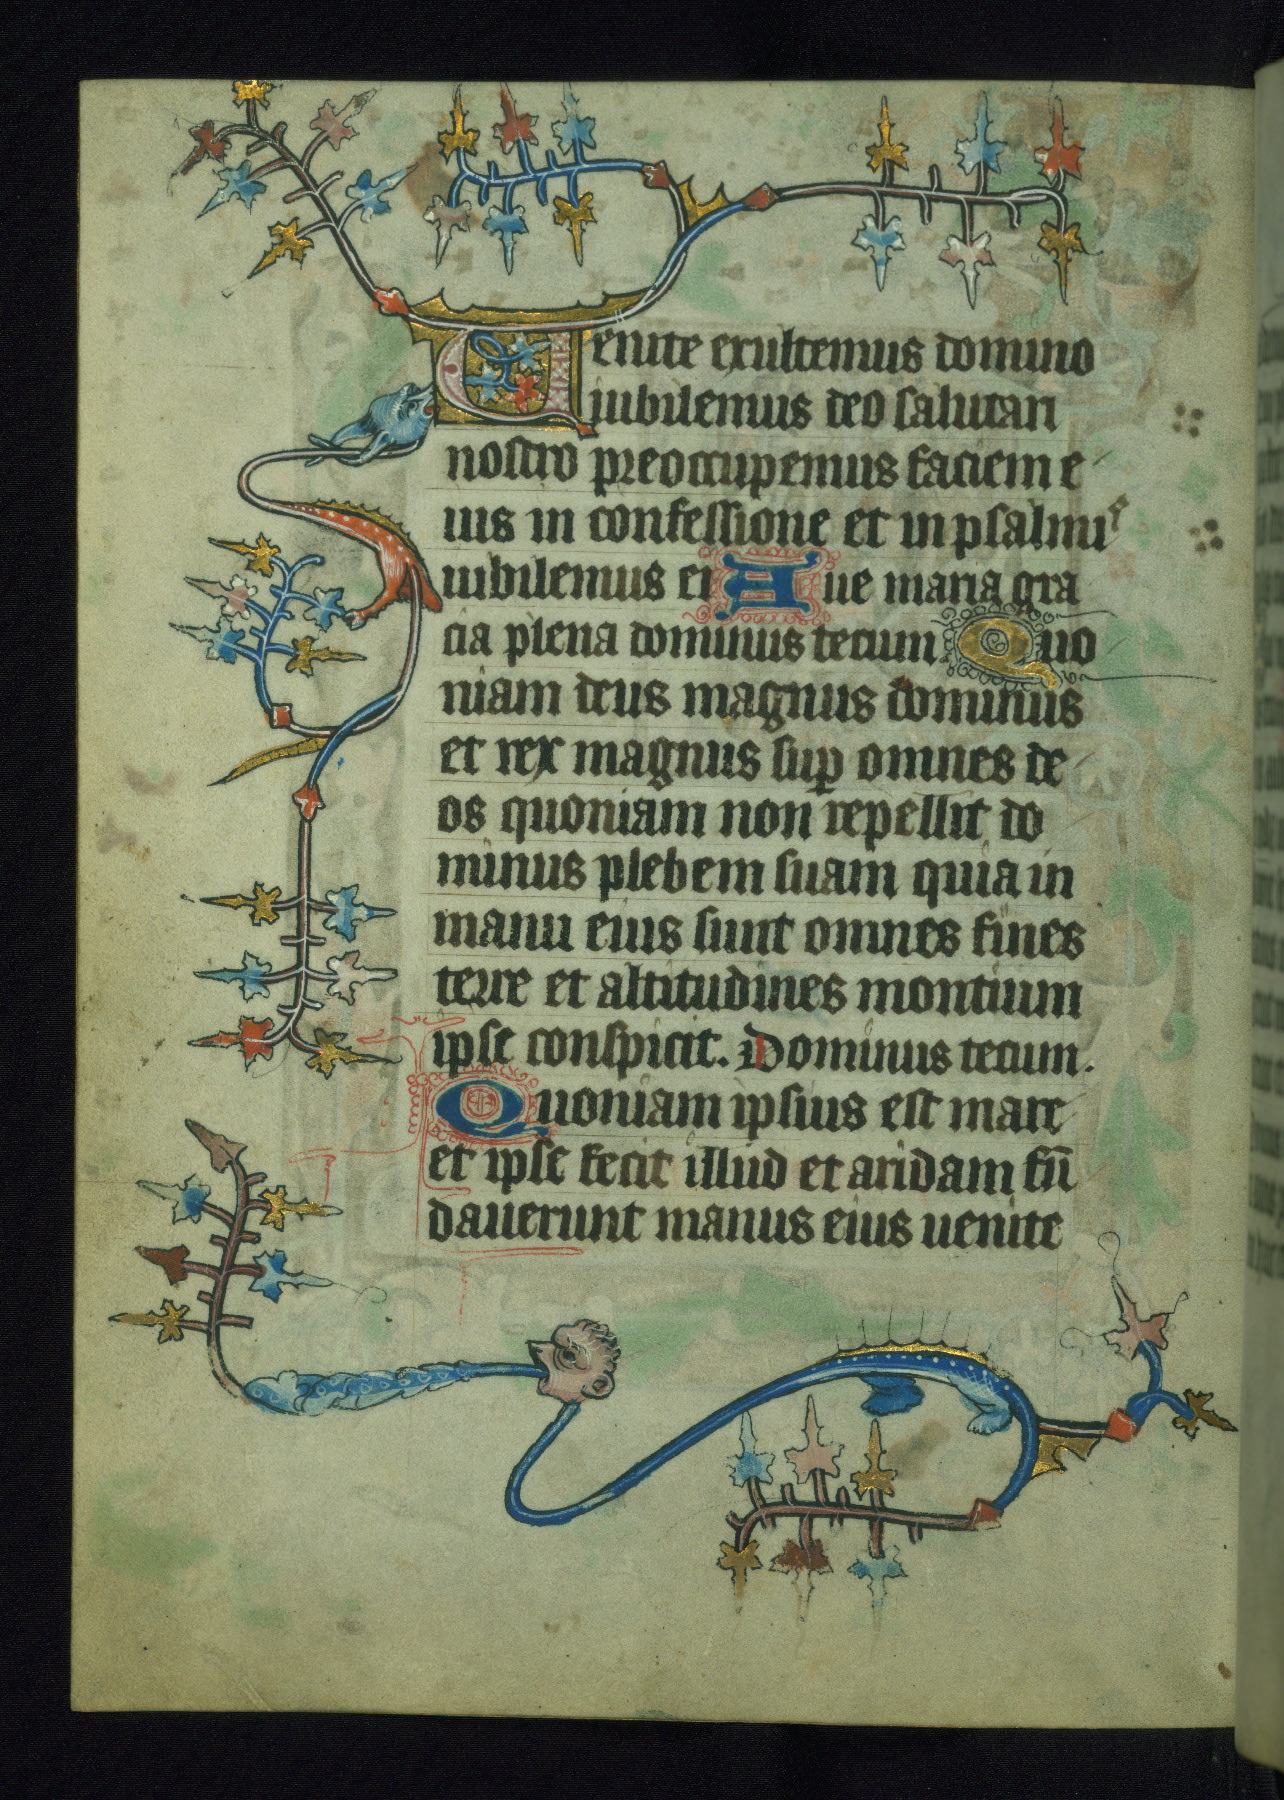 Uenite exultemus domino
iubilemus deo salutari
nostro preoccupemus faciem e
ius in confessione et in psalmis
iubilemus ei Aue maria gra
cia plena dominus tecum Quo
niam deus magnus dominus
et rex magnus sup omnes de
os quoniam non repellit do
minus plebem suam quia in
manu eius sunt omnes fines
terre et altitudines montium
ipse conspicit. Dominus tecum.
Quoniam ipsius est mare
et ipse fecit illud et aridam fū
dauerunt manus eius uenite